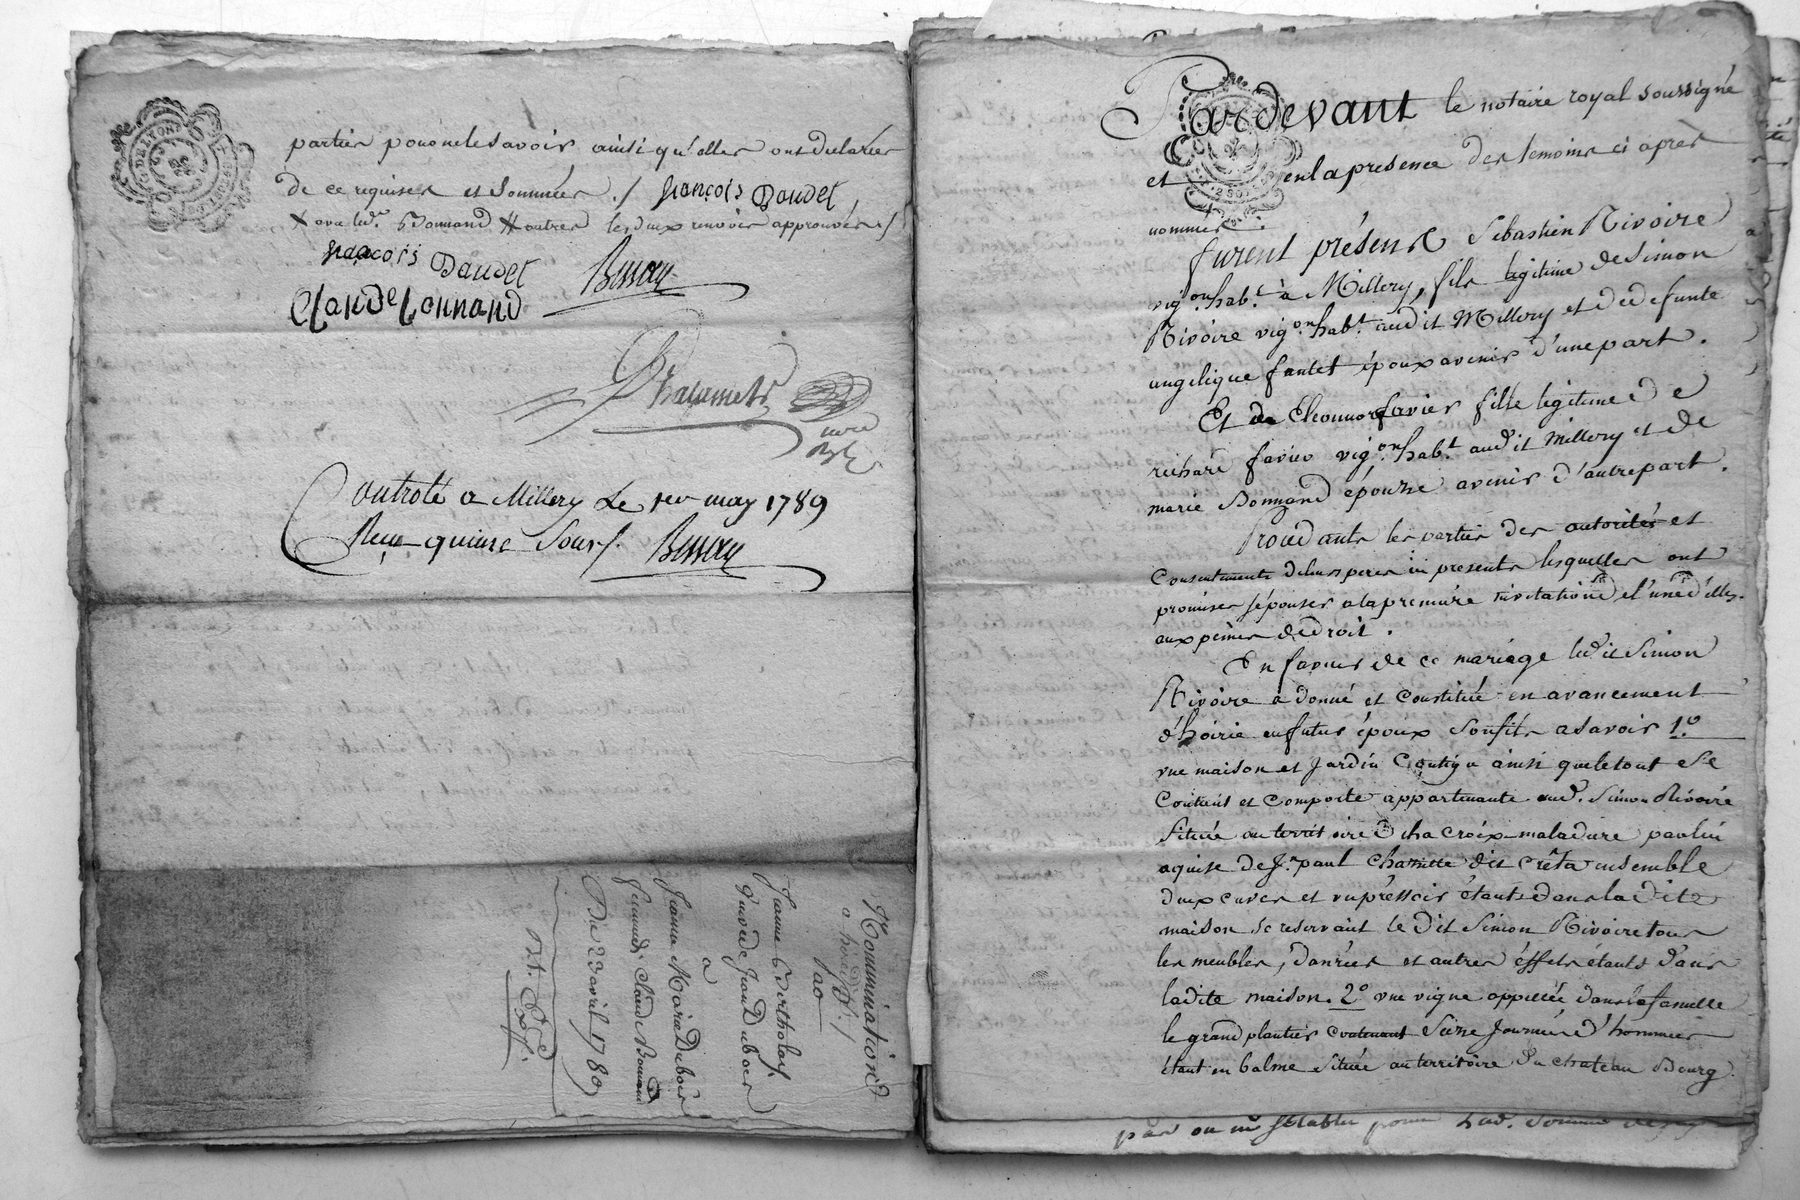 parties pour ne le savoir, ainsi qu'elles ont déclarées
de ce requises et sommées ./ françois Daudet
X ava led.t Bonnand # autres les deux renvois approuvés ./
françois Daudet Besson
Claude Bonnand
Dhacamets
nore
Controlé a Millery Le 1er may 1789
Reçu quinze sous ./. Besson
Nomination d
Jeanne Bertholay
veuve de Jean Duboer
a
Jeanne Marie Duboer
femme de Claude Bonnand
Du 23 avril 1789
Par devant le notaire royal soussigné
et en la presence des temoins ci après
nommés.
furent présens Sébastien Rivoire
vig.on hab.t à Millery, fils légitime de Simon
Rivoire vig.on hab.t audit Millery et de defunte
angélique fantet époux avenir d'une part.
Et de Eléonnor favier fille légitime de
richard favier vig.on hab.t audit Millery et de
marie Bonnand épouse avenir d'autre part.
Procédants les parties des autorités et
consentements de leurs peres ici presents lesquelles ont
promises s'épouser a la première invitation de l'une d'elles
aux peines de droit.
En faveur de ce mariage ledit Simon
Rivoire a donné et constitué en avancement
d'hoirie au futur époux son fils a savoir 1.o
une maison et jardin contigu ainsi que le tout se
contient et comporte appartenante aud. Simon Rivoire
située au territoire de la croix maladière par lui
aquise de J.n paul chazotte dit crêta ensemble
deux cuves et un pressoir étants dans la dite
maison se reservant le dit Simon Rivoire tous
les meubles, danrées et autres éffets étants dans
ladite maison. 2.o une vigne appellée dans la famille
le grand plantier contenant seize journées d'hommes
étant en balme située au territoire du chateau Bourg